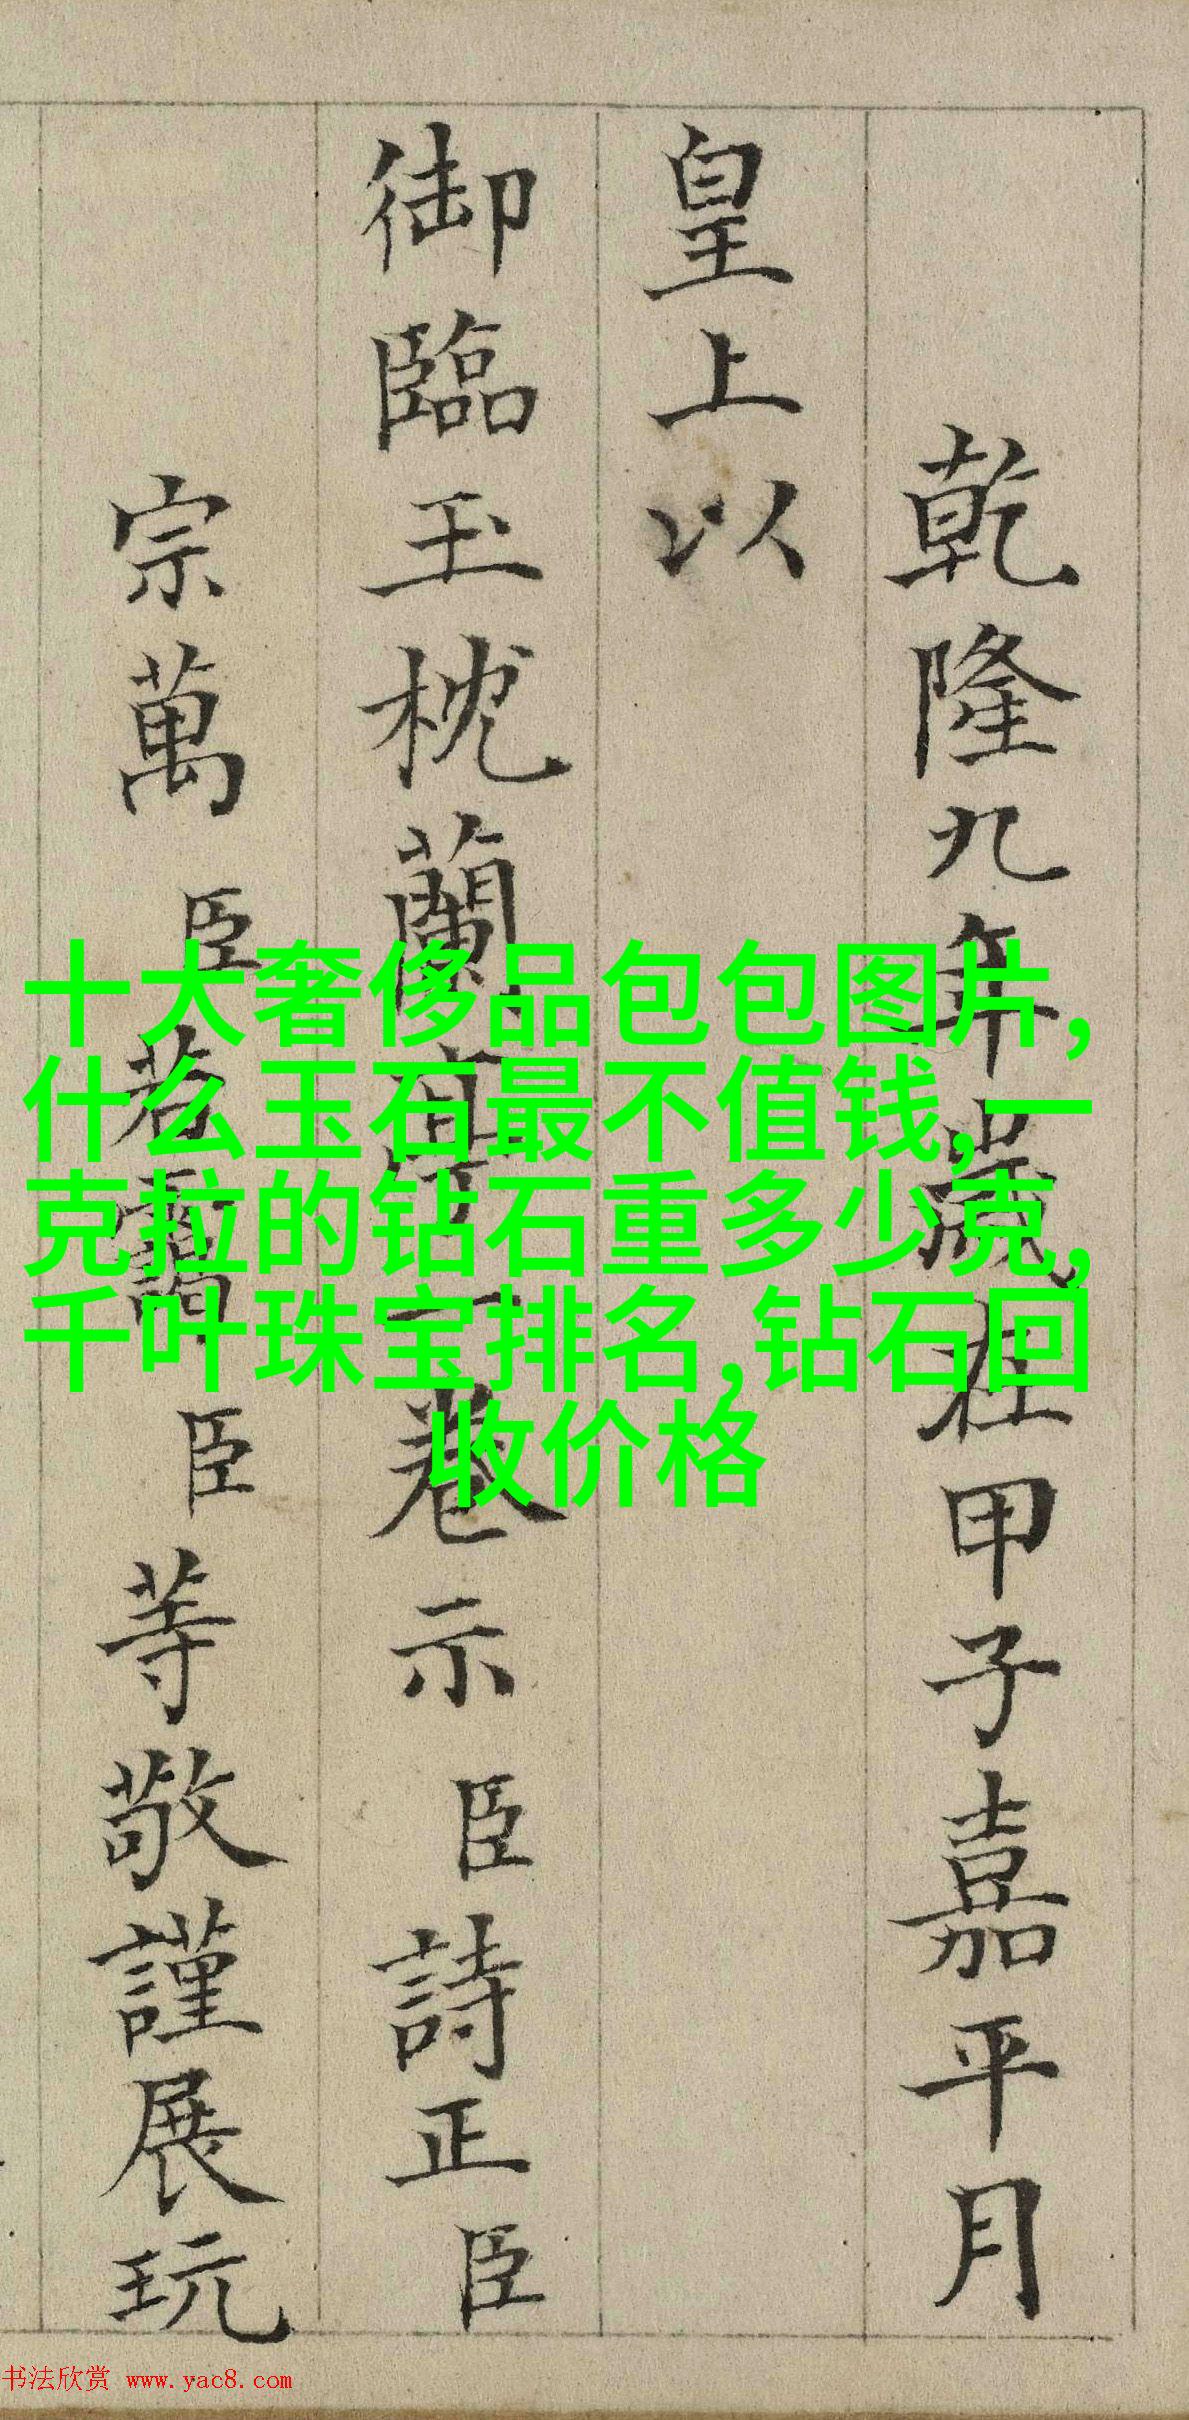 乾隆九年歲在甲子嘉平月
皇上以
御臨玉枕蘭亭一卷示臣詩正臣
宗萬臣若靄臣等敬謹展玩
十大奢侈品包包图片,
什么玉石最不值钱,一
克拉的钻石重多少克,
千叶珠宝排名,钻石回
收价格
书法欣赏 www.yac8.com